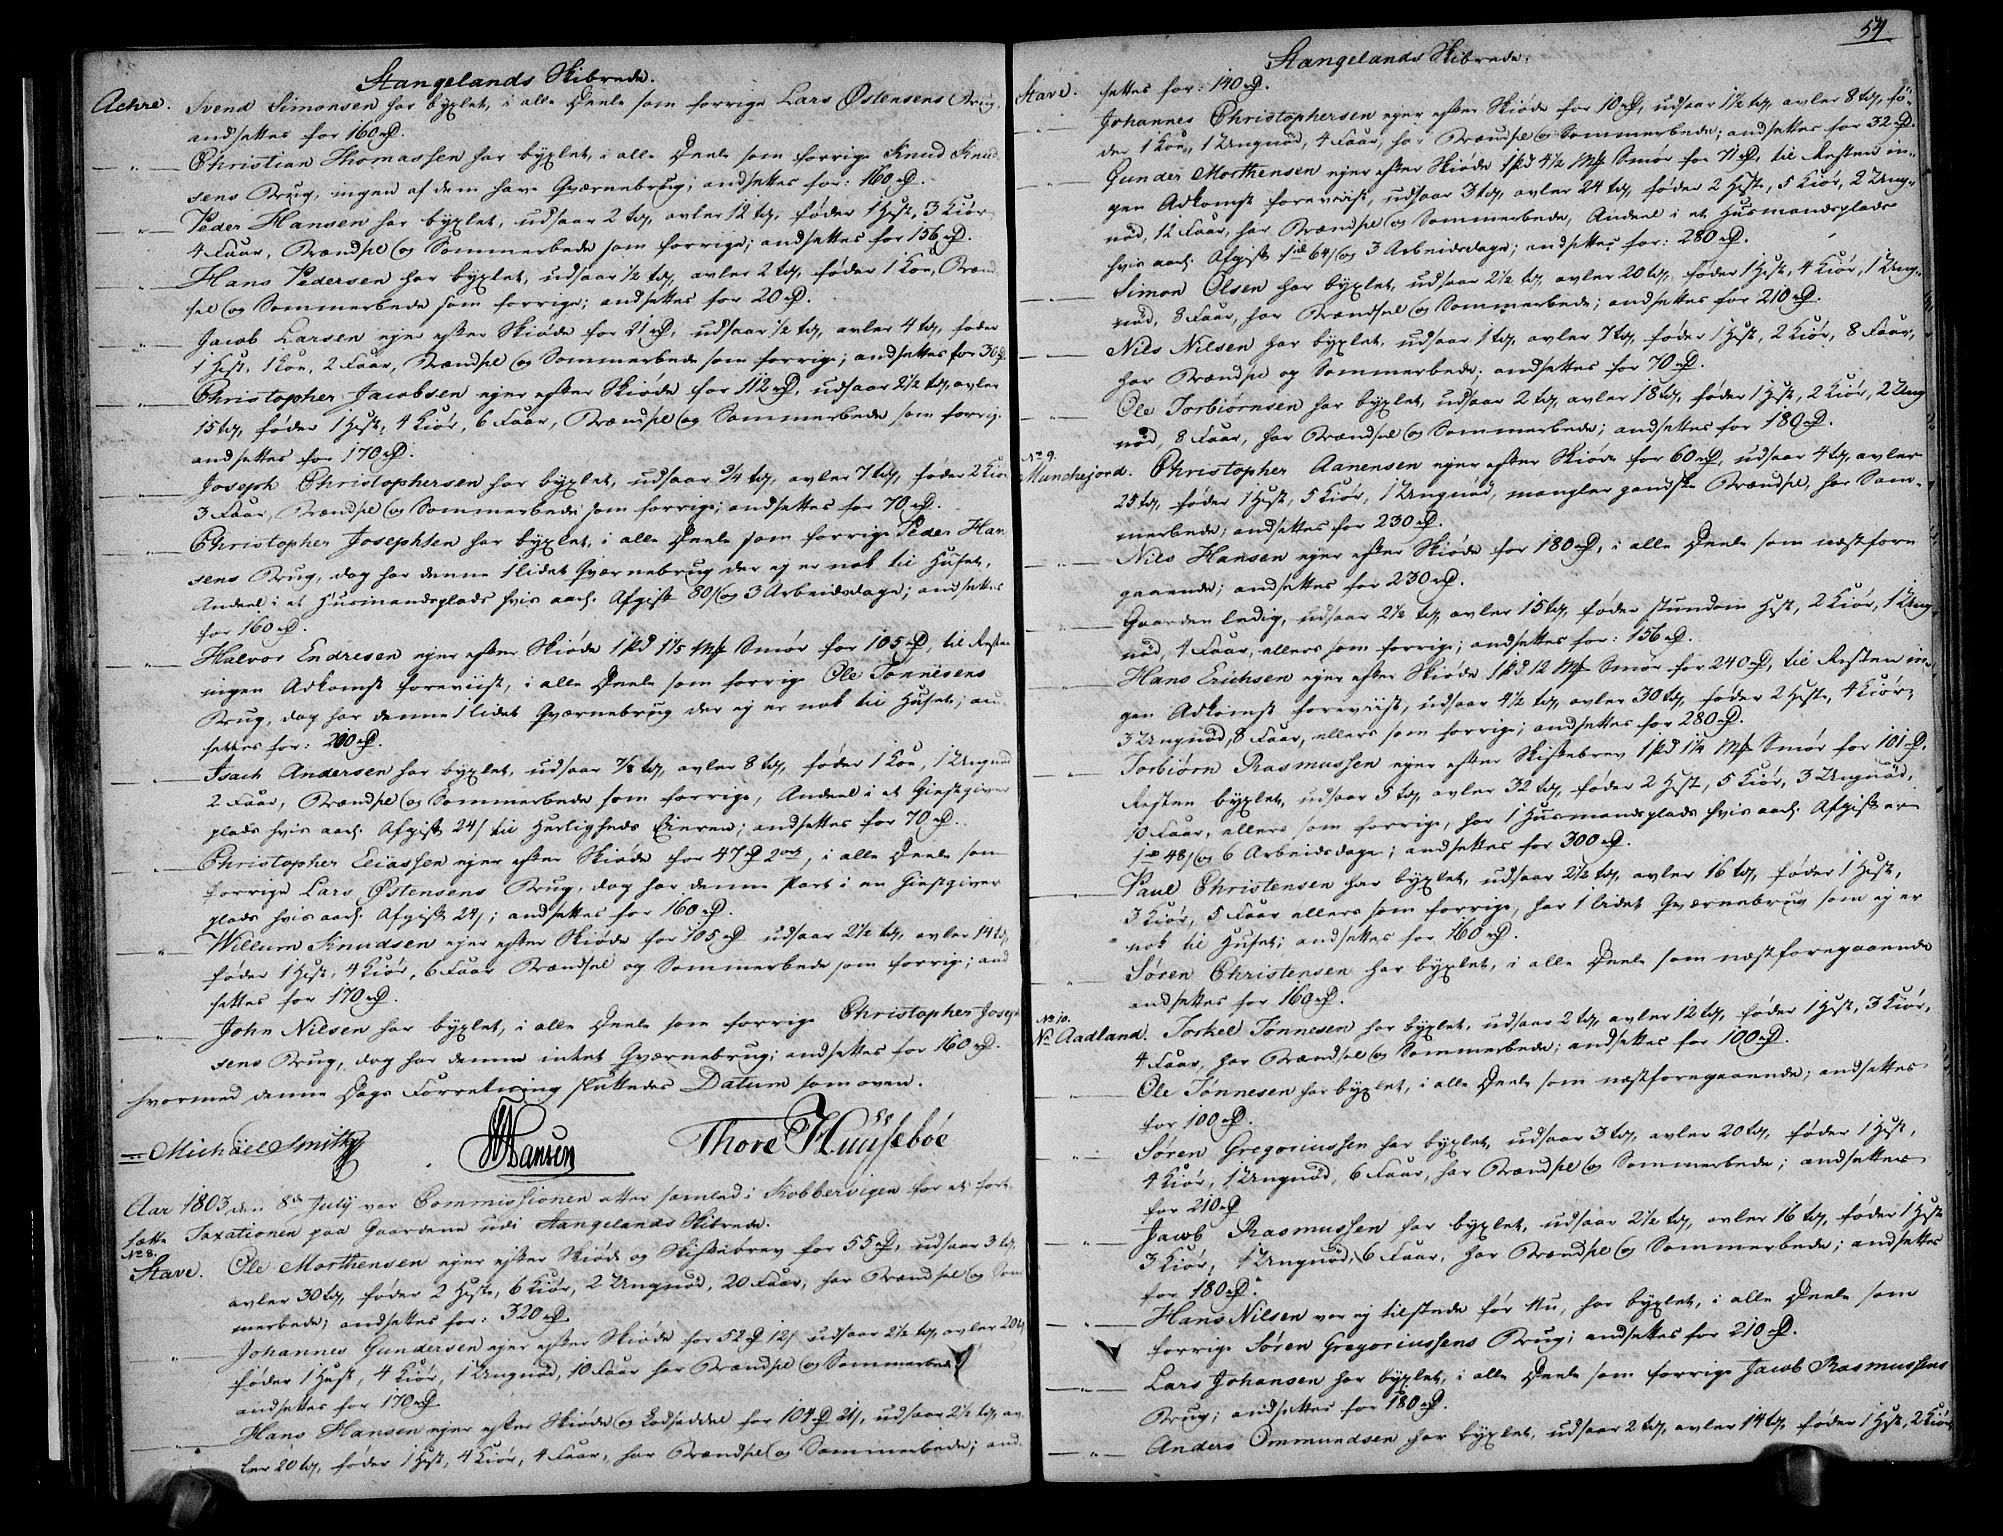 Stangelands Skibrede.
Achre. Svend Simonsen har byxlet, i alle Deele som forrige Lars Østensens Brug,
andsettes for 160 rD.
— " — Christian Thomassen har byxlet, i alle Deele som forrige Knud Knud-
sens Brug, ingen af dem have Qværnebrug; andsettes for: 160 rD.
— " — Peder Hansen har byxlet, udsaar 2 td, avler 12 td, føder 1 Hest, 3 Kiør
4 Faar, Brændsel og Sommerbede som forrige; andsettes for 156 rD.
— " — Hans Pedersen har byxlet, udsaar 1/2 td, avler 2 td, føder 1 Koe, Brænd-
sel og Sommerbede som forrige; andsettes for 20 rD.
— " — Jacob Larsen ejer efter Skiøde for 21 rD, udsaar 1/2 td, avler 4 td, føder
1 Hest, 1 Koe, 2 Faar, Brændsel og Sommerbede som forrige; andsettes for 30 rD.
— " — Christopher Jacobsen ejer efter Skiøde for 112 rD, udsaar 2 1/2 td, avler
15 td, føder 1 Hest, 4 Kiør, 6 Faar, Brændsel og Sommerbede som forrig
andsettes for 170 rD.
— " — Joseph Christophersen har byxlet, udsaar 3/4 td, avler 7 td, føder 2 Kiør
3 Faar, Brændsel og Sommerbede som forrige; andsettes for 70 rD.
— " — Christopher Josephsen har byxlet, i alle Deele som forrige Peder Han-
sens Brug, dog har denne 1 lidet Qværnebrug der ej er nok til Huset,
Andeel i et Husmandsplads hvis aarl. Afgift 80 s og 3 Arbeidsdage; andsettes
for 160 rD.
— " — Halvor Endresen ejer efter Skiøde 1 spd 15 Mk Smør for 105 rD, til Resten
ingen Adkomst foreviist, i alle Deele som forrige Ole Tønnesens
Brug, dog har denne 1 lidet Qværnebrug der ej er nok til Huset; an-
settes for: 200 rD.
— " — Isach Andersen har byxlet, udsaar 7/8 td, avler 8 td, føder 1 Koe, 1 Ungnød
2 Faar, Brændsel og Sommerbede som forrige, Andeel i et Giestgiver
plads hvis aarl. Afgift 24 s til Herligheds Eieren; andsettes for 70 rD.
— " — Christopher Eliassen ejer efter Skiøde for 47 rD 2 ort, i alle Deele som
forrige Lars Østensens Brug, dog har denne Part i en Giestgiver
plads hvis aarl. Afgift 24 s; andsettes for 160 rD.
— " — Willum Knudsen ejer efter Skiøde for 105 rD udsaar 2 1/2 td, avler 14 td,
føder 1 Hest, 4 Kiør, 6 Faar Brændsel og Sommerbede som forrige; and
settes for 170 rD.
— " — John Nilsen har byxlet, i alle Deele som forrige Christopher Joseph
sens Brug, dog har denne intet Qværnebrug; andsettes for 160 rD.
hvormed denne Dags Forretning sluttedes Datum som oven.
Michäel Smith Hansen Thore Huusebøe
Aar 1803, den 8de July var Commissionen atter samlet i Kobbervigen for at fort-
sætte Taxationen paa Gaardene udi Stangelands Skibrede.
No 8.
Stave. Ole Morthensen ejer efter Skiøde og Skiftebrev for 55 rD, udsaar 3 td,
avler 30 td, føder 2 Heste, 6 Kiør, 2 Ungnød, 20 Faar, har Brændsel og Som
merbede; andsettes for: 320 rD
— " — Johannes Gundersen ejer efter Skiøde for 52 rD 12 s udsaar 2 1/2 td, avler 20 td
føder 1 Hest, 4 Kiør, 1 Ungnød, 10 Faar har Brændsel og Sommerbede
andsettes for 170 rD
— " — Hans Hansen ejer efter Skiøde og Lodseddel for 104 rD 21 s, udsaar 2 1/2 td, av-
ler 20 td, føder 1 Hest, 4 Kiør, 4 Faar, har Brændsel og Sommerbede; and-
54
Stangelands Skibrede.
Stave. settes for: 140 rD.
— " — Johannes Christophersen ejer efter Skiøde for 10 rD, udsaar 1 1/2 td, avler 8 td, fø-
der 1 Koe, 1 Ungnød, 4 Faar, har Brændsel og Sommerbede; andsettes for 32 rD.
— " — Gunder Morthensen ejer efter Skiøde 1 spd 4 1/2 Mk Smør for 71 rD, til Resten in-
gen Adkomst foreviist, udsaar 3 td, avler 24 td, føder 2 Heste, 5 Kiør, 2 Ung-
nød, 12 Faar, har Brændsel og Sommerbede, Andeel i et Husmandsplads
hvis aarl. Afgift 1 rd 64 s og 3 Arbeidsdage; andsettes for: 280 rD.
— " — Simon Olsen har byxlet, udsaar 2 1/2 td, avler 20 td, føder 1 Hest, 4 Kiør, 1 Ung-
nød, 8 Faar, har Brændsel og Sommerbede; andsettes for 210 rD.
— " — Nils Nilsen har byxlet, udsaar 1 td, avler 7 td, føder 1 Hest, 2 Kiør, 8 Faar,
har Brændsel og Sommerbede; andsettes for 70 rD.
— " — Ole Torbiørnsen har byxlet, udsaar 2 td, avler 18 td, føder 1 Hest, 2 Kiør, 2 Ung
nød, 8 Faar, har Brændsel og Sommerbede; andsettes for 180 rD.
No 9.
Munchejord. Christopher Aanensen ejer efter Skiøde for 60 rD, udsaar 4 td, avler
25 td, føder 1 Hest, 5 Kiør, 1 Ungnød, mangler gandske Brændsel, har Som-
merbede; andsettes for 230 rD.
— " — Nils Hansen ejer efter Skiøde for 180 rD, i alle Deele som næstfore
gaaende; andsettes for 230 rD.
— " — Gaarden ledig, udsaar 2 1/2 td, avler 15 td, føder stundom Hest, 2 Kiør, 1 Ung
nød, 4 Faar, ellers som forrige; andsettes for: 156 rD.
— " — Hans Erichsen ejer efter Skiøde 1 spd 12 Mk Smør for 240 rD, til Resten in-
gen Adkomst foreviist, udsaar 4 1/2 td, avler 30 td, føder 2 Heste, 4 Kiør,
3 Ungnød, 8 Faar, ellers som forrige; andsettes for 280 rD.
— " — Torbiørn Rasmussen ejer efter Skiftebrev 1 spd 1 1/2 Mk Smør for 101 rD,
Resten byxlet, udsaar 5 td, avler 32 td, føder 2 Hest, 5 Kiør, 3 Ungnød,
10 Faar, ellers som forrige, har 1 Husmandsplads hvis aarl. Afgift er
1 rd 48 s og 6 Arbeidsdage; andsettes for 300 rD.
— " — Paul Christensen har byxlet, udsaar 2 1/2 td, avler 16 td, føder 1 Hest,
3 Kiør, 5 Faar ellers som forrige, har 1 lidet Qværnebrug som ej er
nok til Huset; andsettes for 160 rD.
— " — Søren Christensen har byxlet, i alle Deele som næstforegaaende
andsettes for 160 rD.
No 10.
No Aadland. Torkel Tønnesen har byxlet, udsaar 2 td, avler 12 td, føder 1 Hest, 3 Kiør,
4 Faar, har Brændsel og Sommerbede; andsettes for 100 rD.
— " — Ole Tønnesen har byxlet, i alle Deele som næstforegaaende; andsettes
for 100 rD.
— " — Søren Gregoriussen har byxlet, udsaar 3 td, avler 20 td, føder 1 Hest,
4 Kiør, 1 Ungnød, 6 Faar, har Brændsel og Sommerbede; andsettes
for 210 rD
— " — Jacob Rasmussen har byxlet, udsaar 2 1/2 td, avler 16 td, føder 1 Hest
3 Kiør, 1 Ungnød, 6 Faar, har Brændsel og Sommerbede; andsettes
for 180 rD.
— " — Hans Nilsen var ej tilstede før Nu, har byxlet, i alle Deele som
forrige Søren Gregoriussens Brug; andsettes for 210 rD.
— " — Lars Johansen har byxlet, i alle Deele som forrige Jacob Rasmussens
Brug; andsettes for 180 rD.
— " — Anders Ommundsen har byxlet, udsaar 2 td, avler 14 td, føder 1 Hest, 2 Kiør,